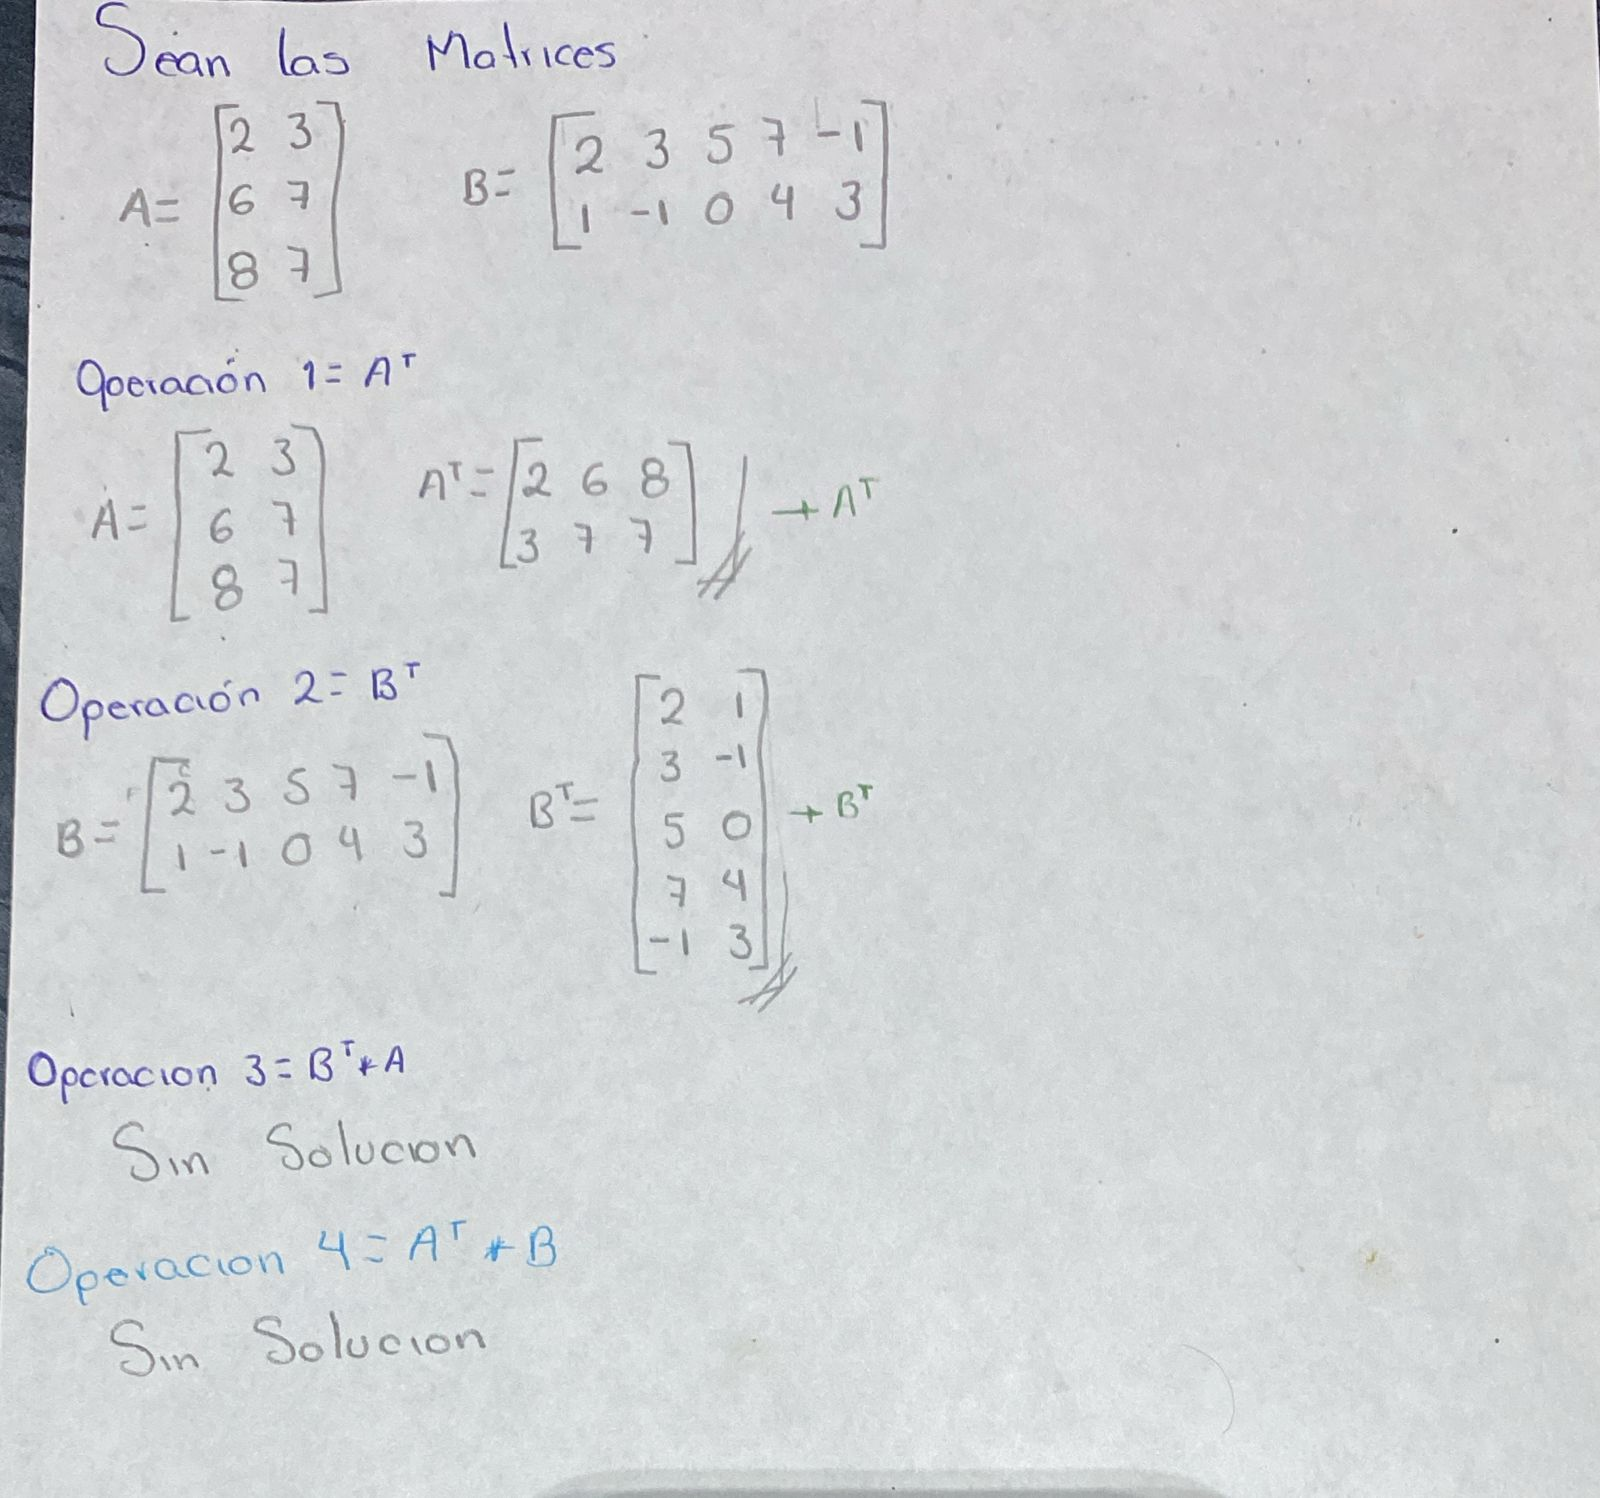 Sean las Matrices
A= [2 3; 6 7; 8 7] B= [2 3 5 7 -1; 1 -1 0 4 3]
Operación 1= Aᵀ
A= [2 3; 6 7; 8 7] Aᵀ= [2 6 8; 3 7 7] → Aᵀ
Operación 2= Bᵀ
B= [2 3 5 7 -1; 1 -1 0 4 3] Bᵀ= [2 1; 3 -1; 5 0; 7 4; -1 3] → Bᵀ
Operacion 3= Bᵀ*A
Sin Solucion
Operacion 4= Aᵀ*B
Sin Solucion